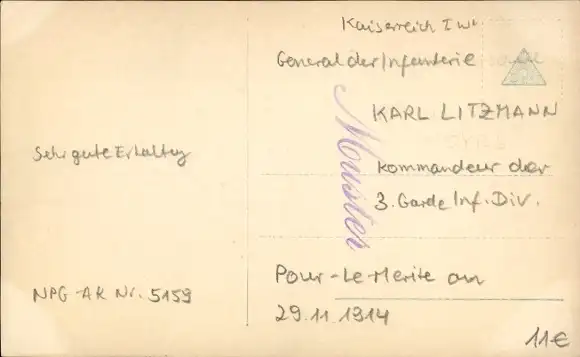 Kaiserreich I WK
General der Infanterie
KARL LITZMANN
Kommandeur der
3. Garde Inf. Div.
Sehr gute Erhaltung
Muster
Pour-Le Merite am
29.11.1914
NPG AK Nr. 5159
11€